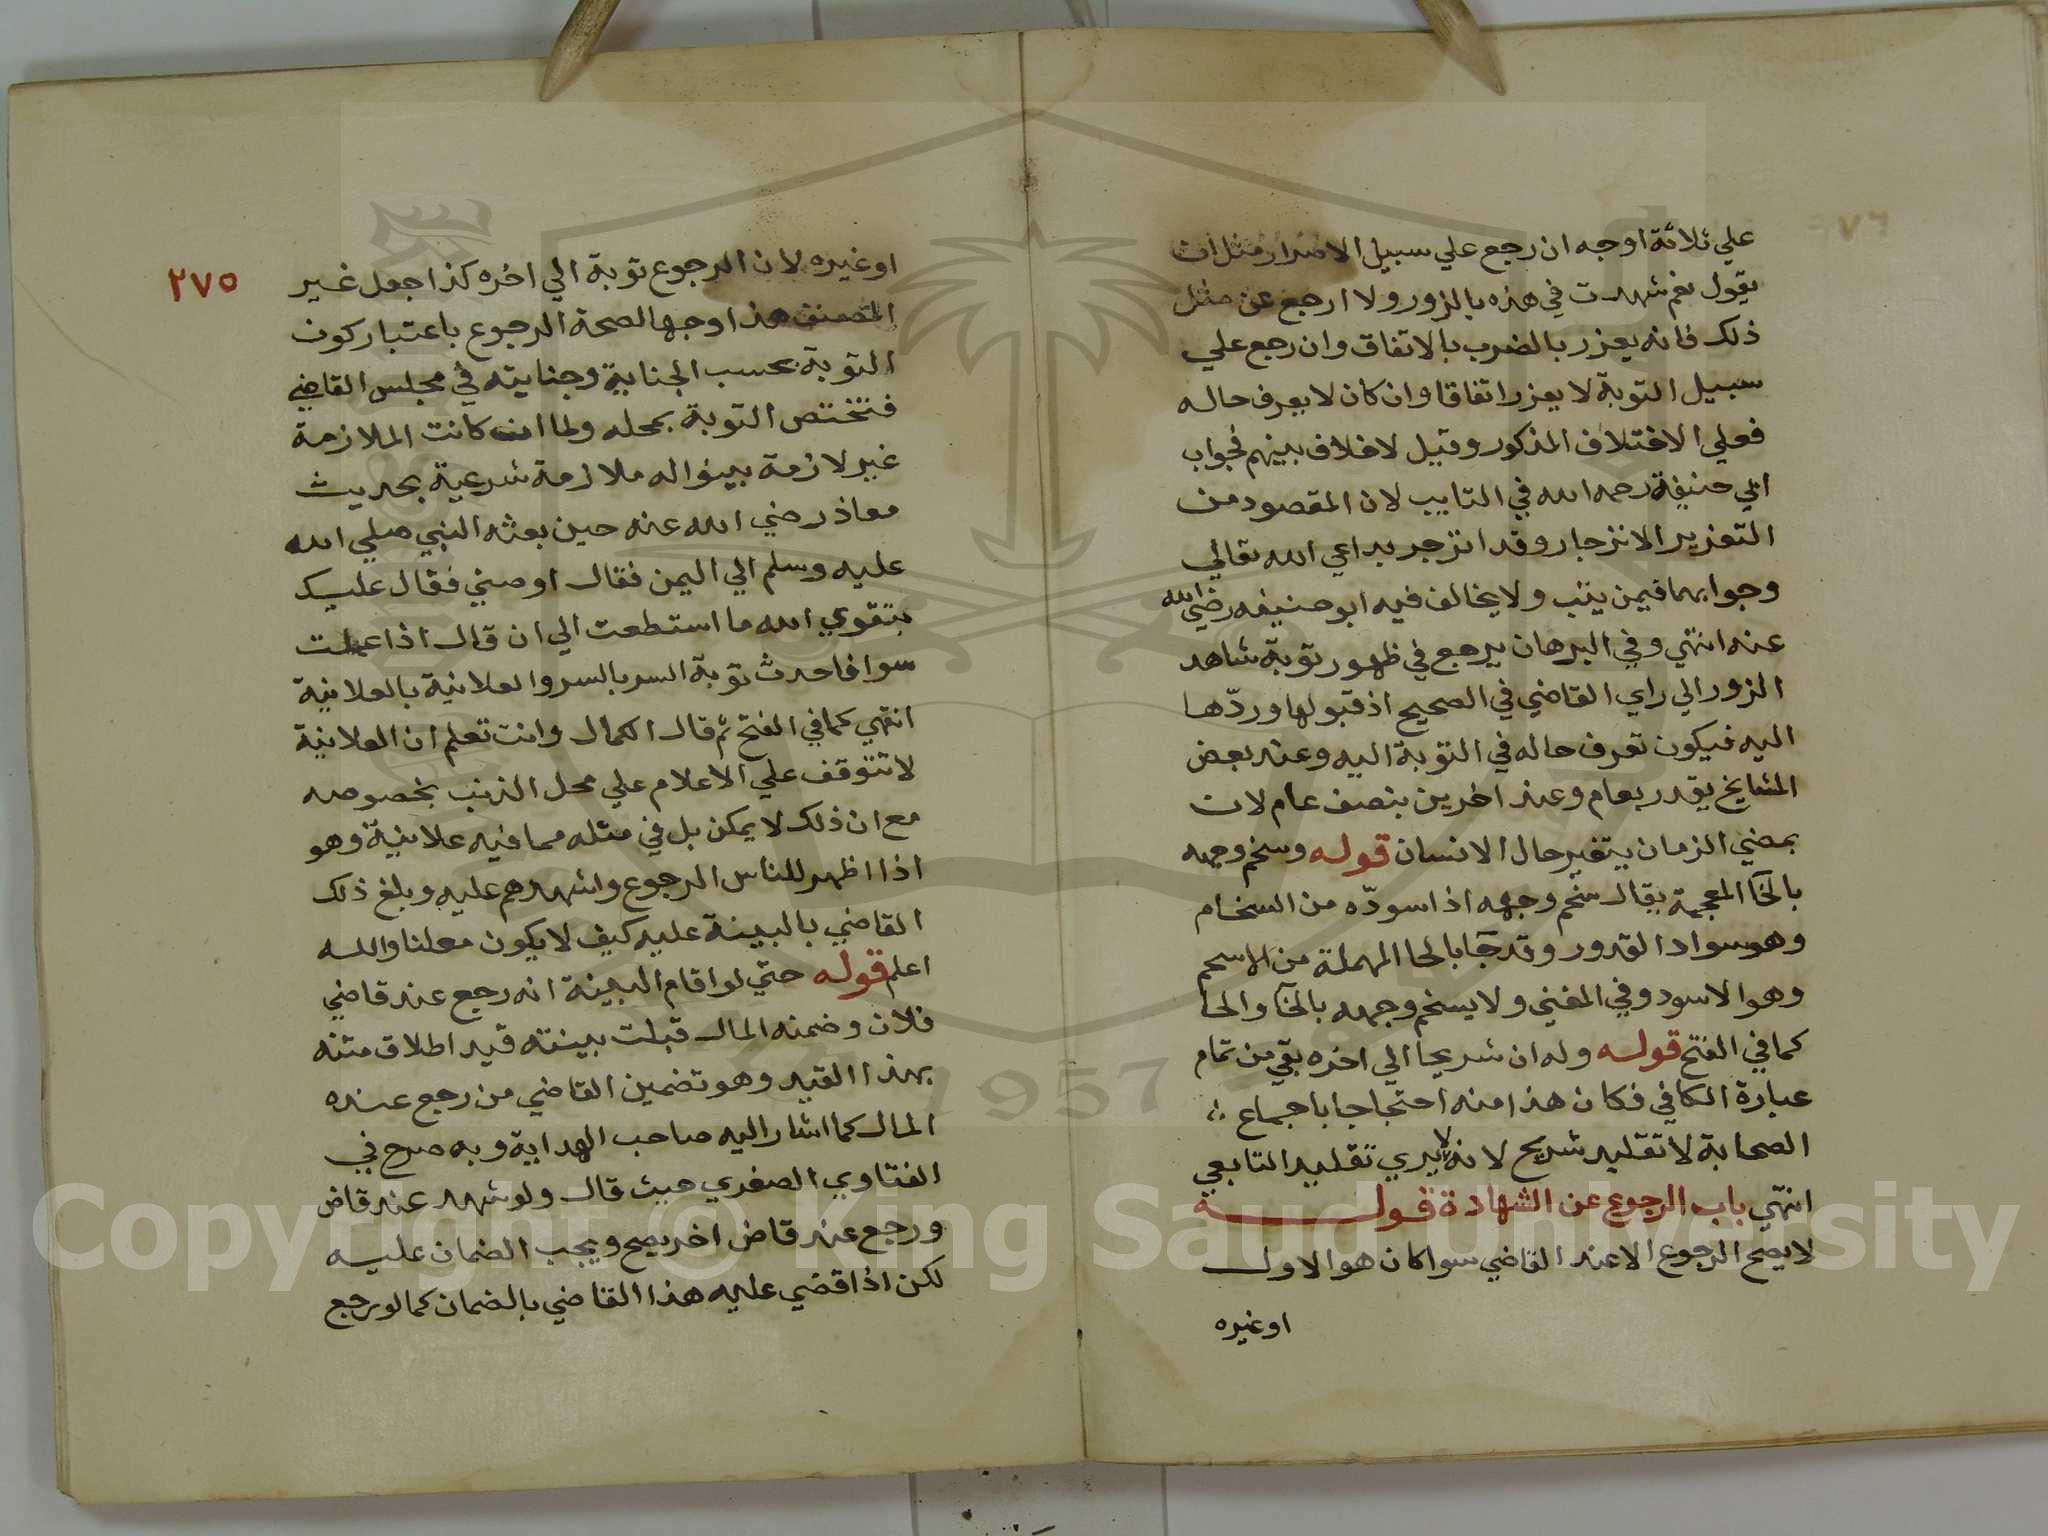 علي ثلاثة اوجه ان رجع علي سبيل الاصرار مثل ان
يقول نعم شهدت في هذه بالزور ولا ارجع عن مثل
ذلك فانه يعزر بالضرب بالاتفاق وان رجع علي
سبيل التوبة لا يعزر اتفاقا وان كان لا يعرف حاله
فعلي الاختلاف المذكور وقيل لا خلاف بينهم فجواب
ابي حنيفة رحمه الله في التايب لان المقصود من
التعزير الانزجار وقد انزجر بداعي الله تعالي
وجوابهما فيمن يتب ولا يخالف فيه ابو حنيفه رضي الله
عنه انتهي وفي البرهان يرجع في ظهور توبة شاهد
الزور الي راي القاضي في الصحيح اذ قبولها وردّها
اليه فيكون تعرف حاله في التوبة اليه وعند بعض
المشايخ يقدر بعام وعند اخرين بنصف عام لان
بمضي الزمان يتغير حال الانسان قوله وسخم وجهه
بالخآ المعجمة يقال سخم وجهه اذا سودّه من السخام
وهو سواد القدور وقد جآ بالحا المهملة من الاسحم
وهو الاسود وفي المغني ولا يسخم وجهه بالخآ والحا
كما في الفتح قوله وله ان شريحا الي اخره بقي من تمام
عبارة الكافي فكان هذا منه احتجاجا باجماع
الصحابة لا تقليد شريح لانه لا يري تقليد التابعي
انتهي باب الرجوع عن الشهادة قوله
لا يصح الرجوع الا عند القاضي سوا كان هو الاول
او غيره
٢٧٥
او غيره لان الرجوع توبة الي اخره كذا جعل غير
المصنف هذا وجها لصحة الرجوع باعتبار كون
التوبة بحسب الجناية وجنايته في مجلس القاضي
فتختص التوبة بمحله ولما ان كانت الملازمة
غير لازمة بينوا له ملازمة شرعية بحديث
معاذ رضي الله عنه حين بعثه النبي صلي الله
عليه وسلم الي اليمن فقال اوصني فقال عليك
بتقوي الله ما استطعت الي ان قال اذا عملت
سوا فاحدث توبة السر بالسر والعلانية بالعلانية
انتهي كما في الفتح ثم قال الكمال وانت تعلم ان العلانية
لا تتوقف علي الاعلام علي محل الذنب بخصوصه
مع ان ذلك لا يمكن بل في مثله مما فيه علانية وهو
اذا اظهر للناس الرجوع واشهدهم عليه وبلغ ذلك
القاضي بالبينة عليه كيف لا يكون معلنا والله
اعلم قوله حتي لو اقام البينة انه رجع عند قاضي
فلان وضمنه المال قبلت بينته قيد اطلاق متنه
بهذا القيد وهو تضمين القاضي من رجع عنده
المال كما اشار اليه صاحب الهداية وبه صرح في
الفتاوي الصغري حيث قال ولو شهد عند قاض
ورجع عند قاض اخر يصح ويجب الضمان عليه
لكن اذا قضي عليه هذا القاضي بالضمان كما لو رجع
1957
Copyright © King Saud University